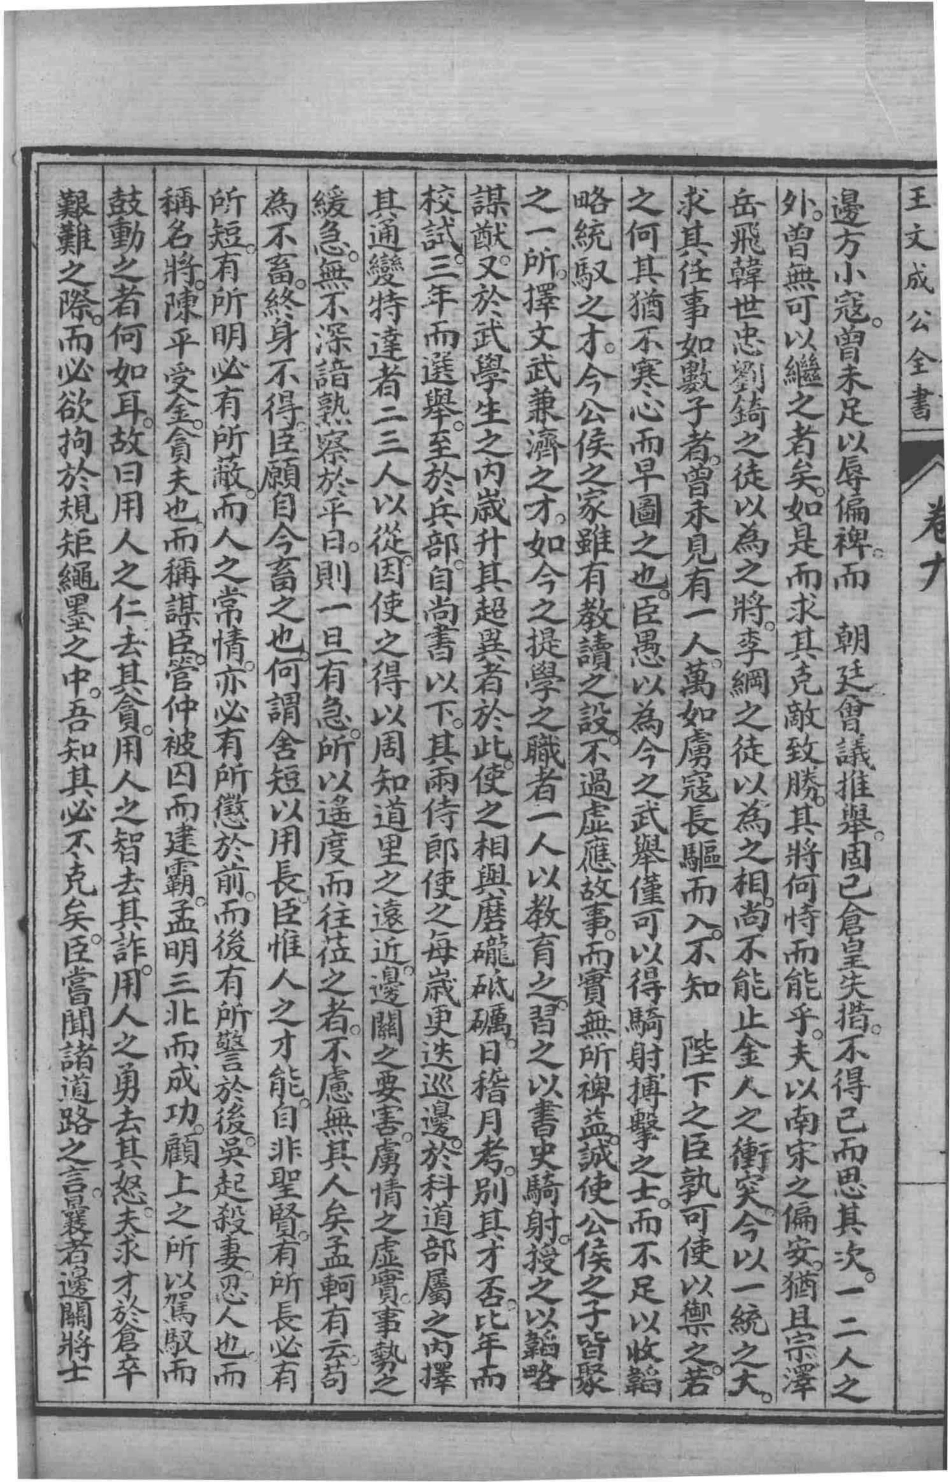 王文成公全書 卷九
邊方小寇。曾未足以辱偏裨。而　朝廷會議推舉。固已倉皇失措。不得已而思其次。一二人之
外。曾無可以繼之者矣。如是而求其克敵致勝。其將何恃而能乎。夫以南宋之偏安。猶且宗澤
岳飛韓世忠劉錡之徒以為之將。李綱之徒以為之相。尚不能止金人之衝突。今以一統之大。
求其任事如數子者。曾未見有一人。萬如虜寇長驅而入。不知　陛下之臣。孰可使以禦之。若
之何其猶不寒心而早圖之也。臣愚以為今之武舉僅可以得騎射搏擊之士。而不足以收韜
略統馭之才。今公侯之家雖有教讀之設。不過虛應故事。而實無所裨益。誠使公侯之子皆聚
之一所。擇文武兼濟之才。如今之提學之職者一人以教育之。習之以書史騎射。授之以韜略
謀猷。又於武學生之內歲升其超異者於此。使之相與磨礲砥礪。日稽月考。別其才否。比年而
校試。三年而選舉。至於兵部。自尚書以下。其兩侍郎使之每歲更迭巡邊。於科道部屬之內擇
其通變特達者二三人以從。因使之得以周知道里之遠近。邊關之要害。虜情之虛實。事勢之
緩急。無不深諳熟察於平日。則一旦有急。所以遙度而往莅之者。不慮無其人矣孟軻有云苟
為不畜。終身不得。臣願自今畜之也。何謂舍短以用長。臣惟人之才能。自非聖賢。有所長必有
所短。有所明必有所蔽。而人之常情。亦必有所懲於前。而後有所警於後。吳起殺妻。忍人也。而
稱名將。陳平受金。貪夫也。而稱謀臣。管仲被囚而建霸。孟明三北而成功。顧上之所以駕馭而
鼓動之者何如耳。故曰用人之仁去其貪。用人之智去其詐。用人之勇去其怒。夫求才於倉卒
艱難之際。而必欲拘於規矩繩墨之中。吾知其必不克矣。臣嘗聞諸道路之言。曩者邊關將士